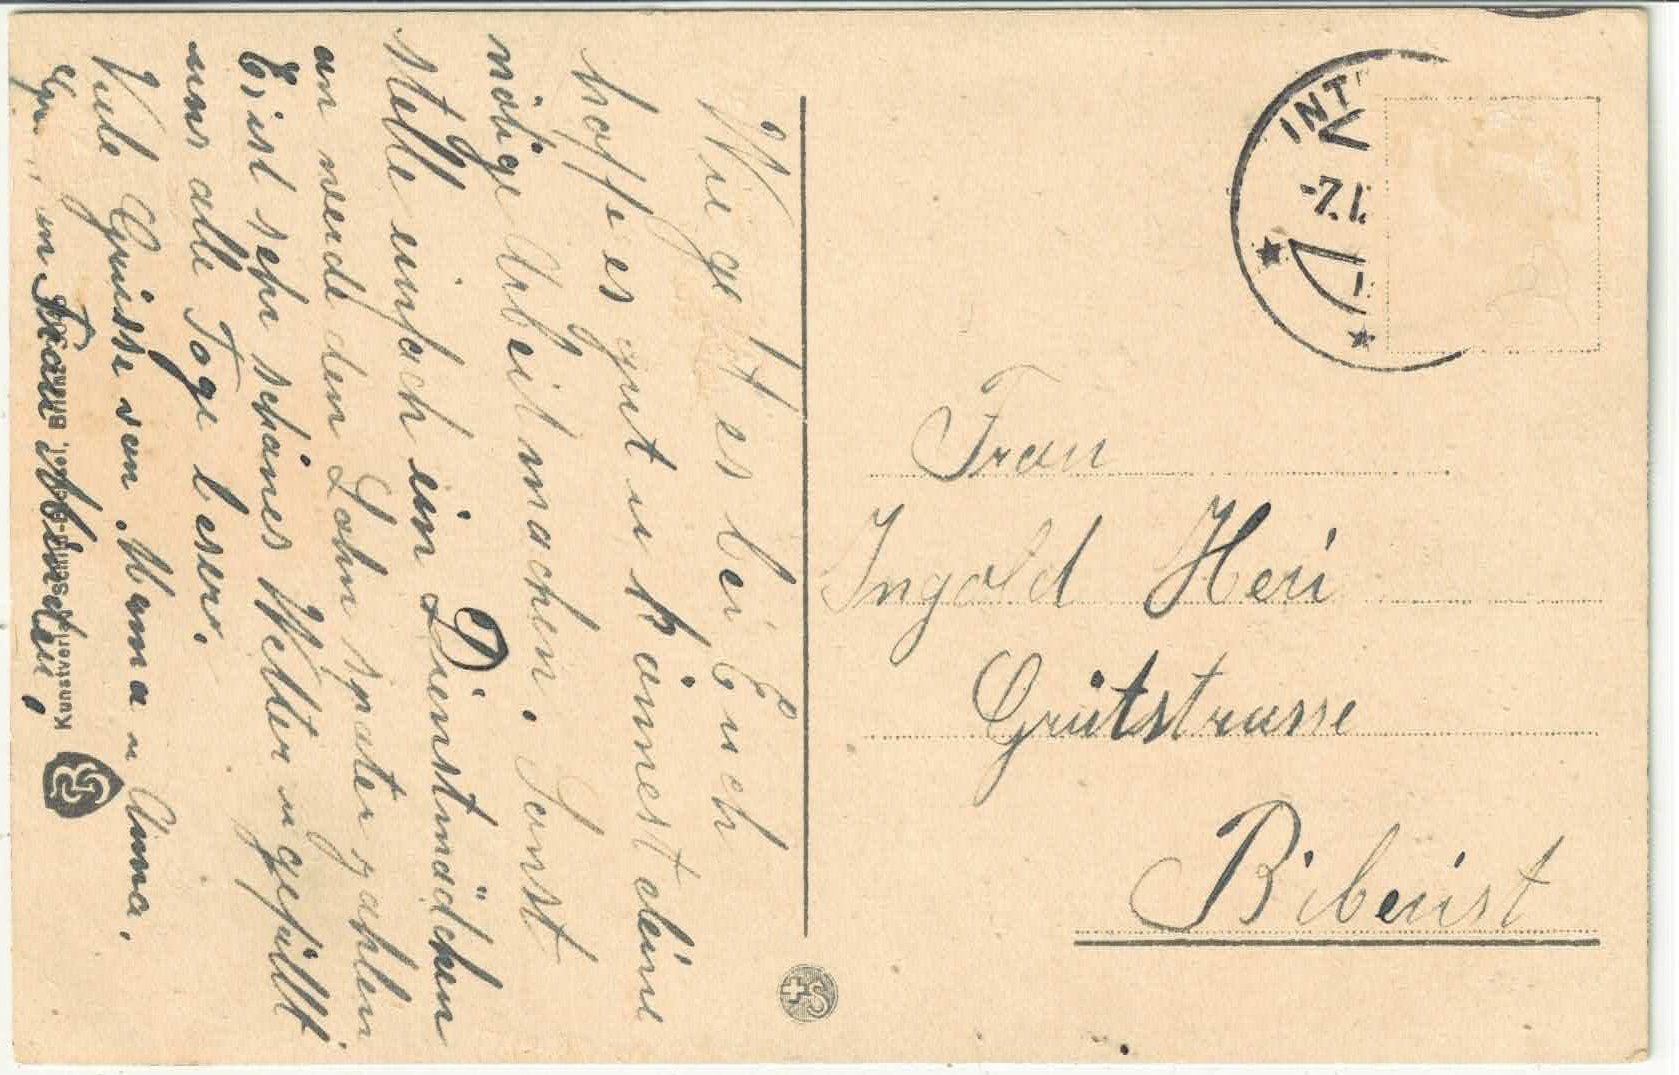 Wie geht es bei Euch
hoffe es gut u könnest deine
nötige Arbeit machen. Sonst
stelle einfach ein Dienstmädchen
an werde den Lohn später zahlen
Es ist sehr schönes Wetter u gefällt
uns alle Tage besser.
Viele Grüsse von Mama u Anna.
in Frau
Kunstverlag Brienz
INT
-7.I.
Frau
Ingold Heri
Grütstrasse
Biberist
+S